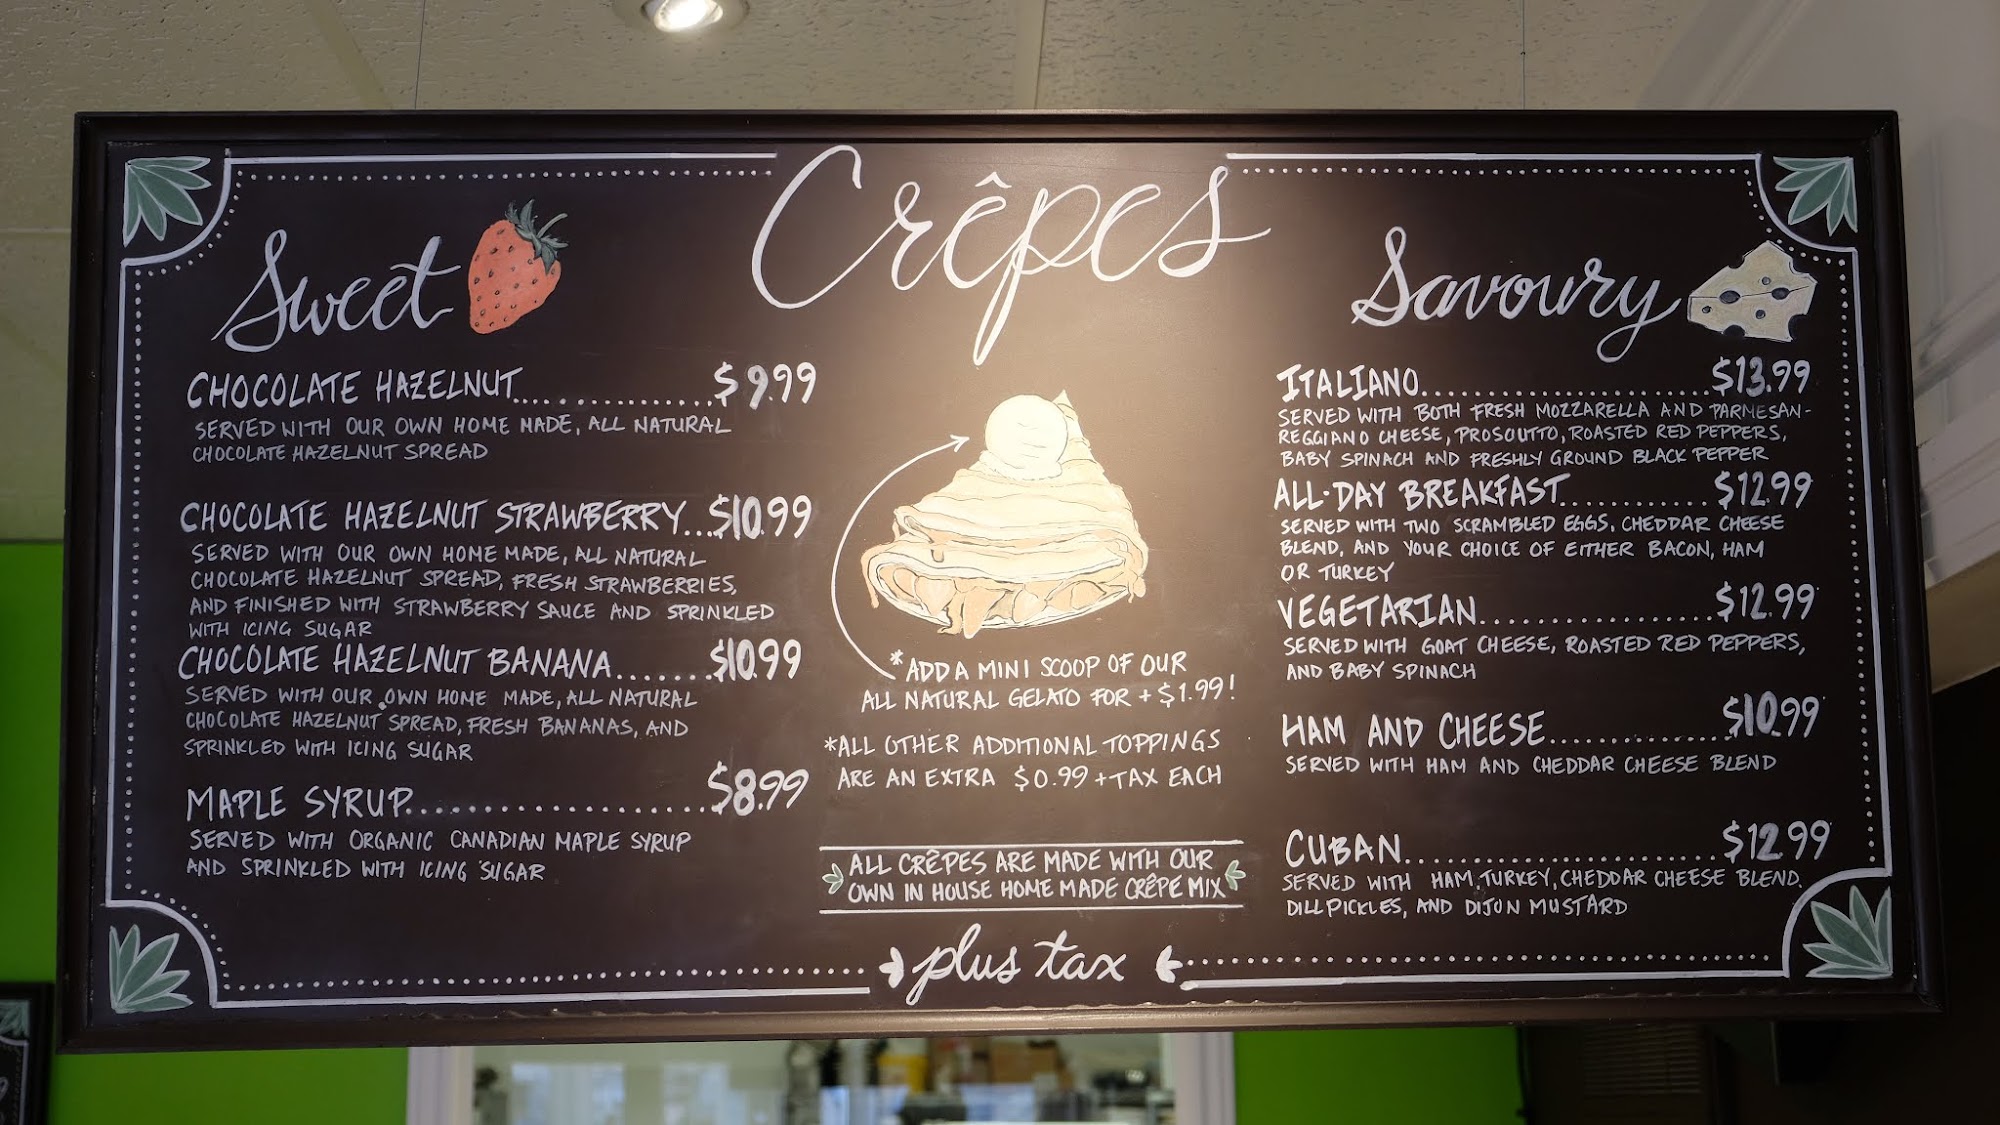 Crêpes
Sweet
CHOCOLATE HAZELNUT.............. $9.99
SERVED WITH OUR OWN HOME MADE, ALL NATURAL
CHOCOLATE HAZELNUT SPREAD
CHOCOLATE HAZELNUT STRAWBERRY...$10.99
SERVED WITH OUR OWN HOME MADE, ALL NATURAL
CHOCOLATE HAZELNUT SPREAD, FRESH STRAWBERRIES,
AND FINISHED WITH STRAWBERRY SAUCE AND SPRINKLED
WITH ICING SUGAR
CHOCOLATE HAZELNUT BANANA.......$10.99
SERVED WITH OUR OWN HOME MADE, ALL NATURAL
CHOCOLATE HAZELNUT SPREAD, FRESH BANANAS, AND
SPRINKLED WITH ICING SUGAR
MAPLE SYRUP.....................$8.99
SERVED WITH ORGANIC CANADIAN MAPLE SYRUP
AND SPRINKLED WITH ICING SUGAR
*ADD A MINI SCOOP OF OUR
ALL NATURAL GELATO FOR +$1.99!
*ALL OTHER ADDITIONAL TOPPINGS
ARE AN EXTRA $0.99 +TAX EACH
ALL CRÊPES ARE MADE WITH OUR
OWN IN HOUSE HOME MADE CRÊPE MIX
plus tax
Savoury
ITALIANO........................$13.99
SERVED WITH BOTH FRESH MOZZARELLA AND PARMESAN-
REGGIANO CHEESE, PROSCUTTO, ROASTED RED PEPPERS,
BABY SPINACH AND FRESHLY GROUND BLACK PEPPER
ALL-DAY BREAKFAST............$12.99
SERVED WITH TWO SCRAMBLED EGGS, CHEDDAR CHEESE
BLEND, AND YOUR CHOICE OF EITHER BACON, HAM
OR TURKEY
VEGETARIAN...................$12.99
SERVED WITH GOAT CHEESE, ROASTED RED PEPPERS,
AND BABY SPINACH
HAM AND CHEESE...............$10.99
SERVED WITH HAM AND CHEDDAR CHEESE BLEND
CUBAN..........................$12.99
SERVED WITH HAM, TURKEY, CHEDDAR CHEESE BLEND,
DILL PICKLES, AND DIJON MUSTARD